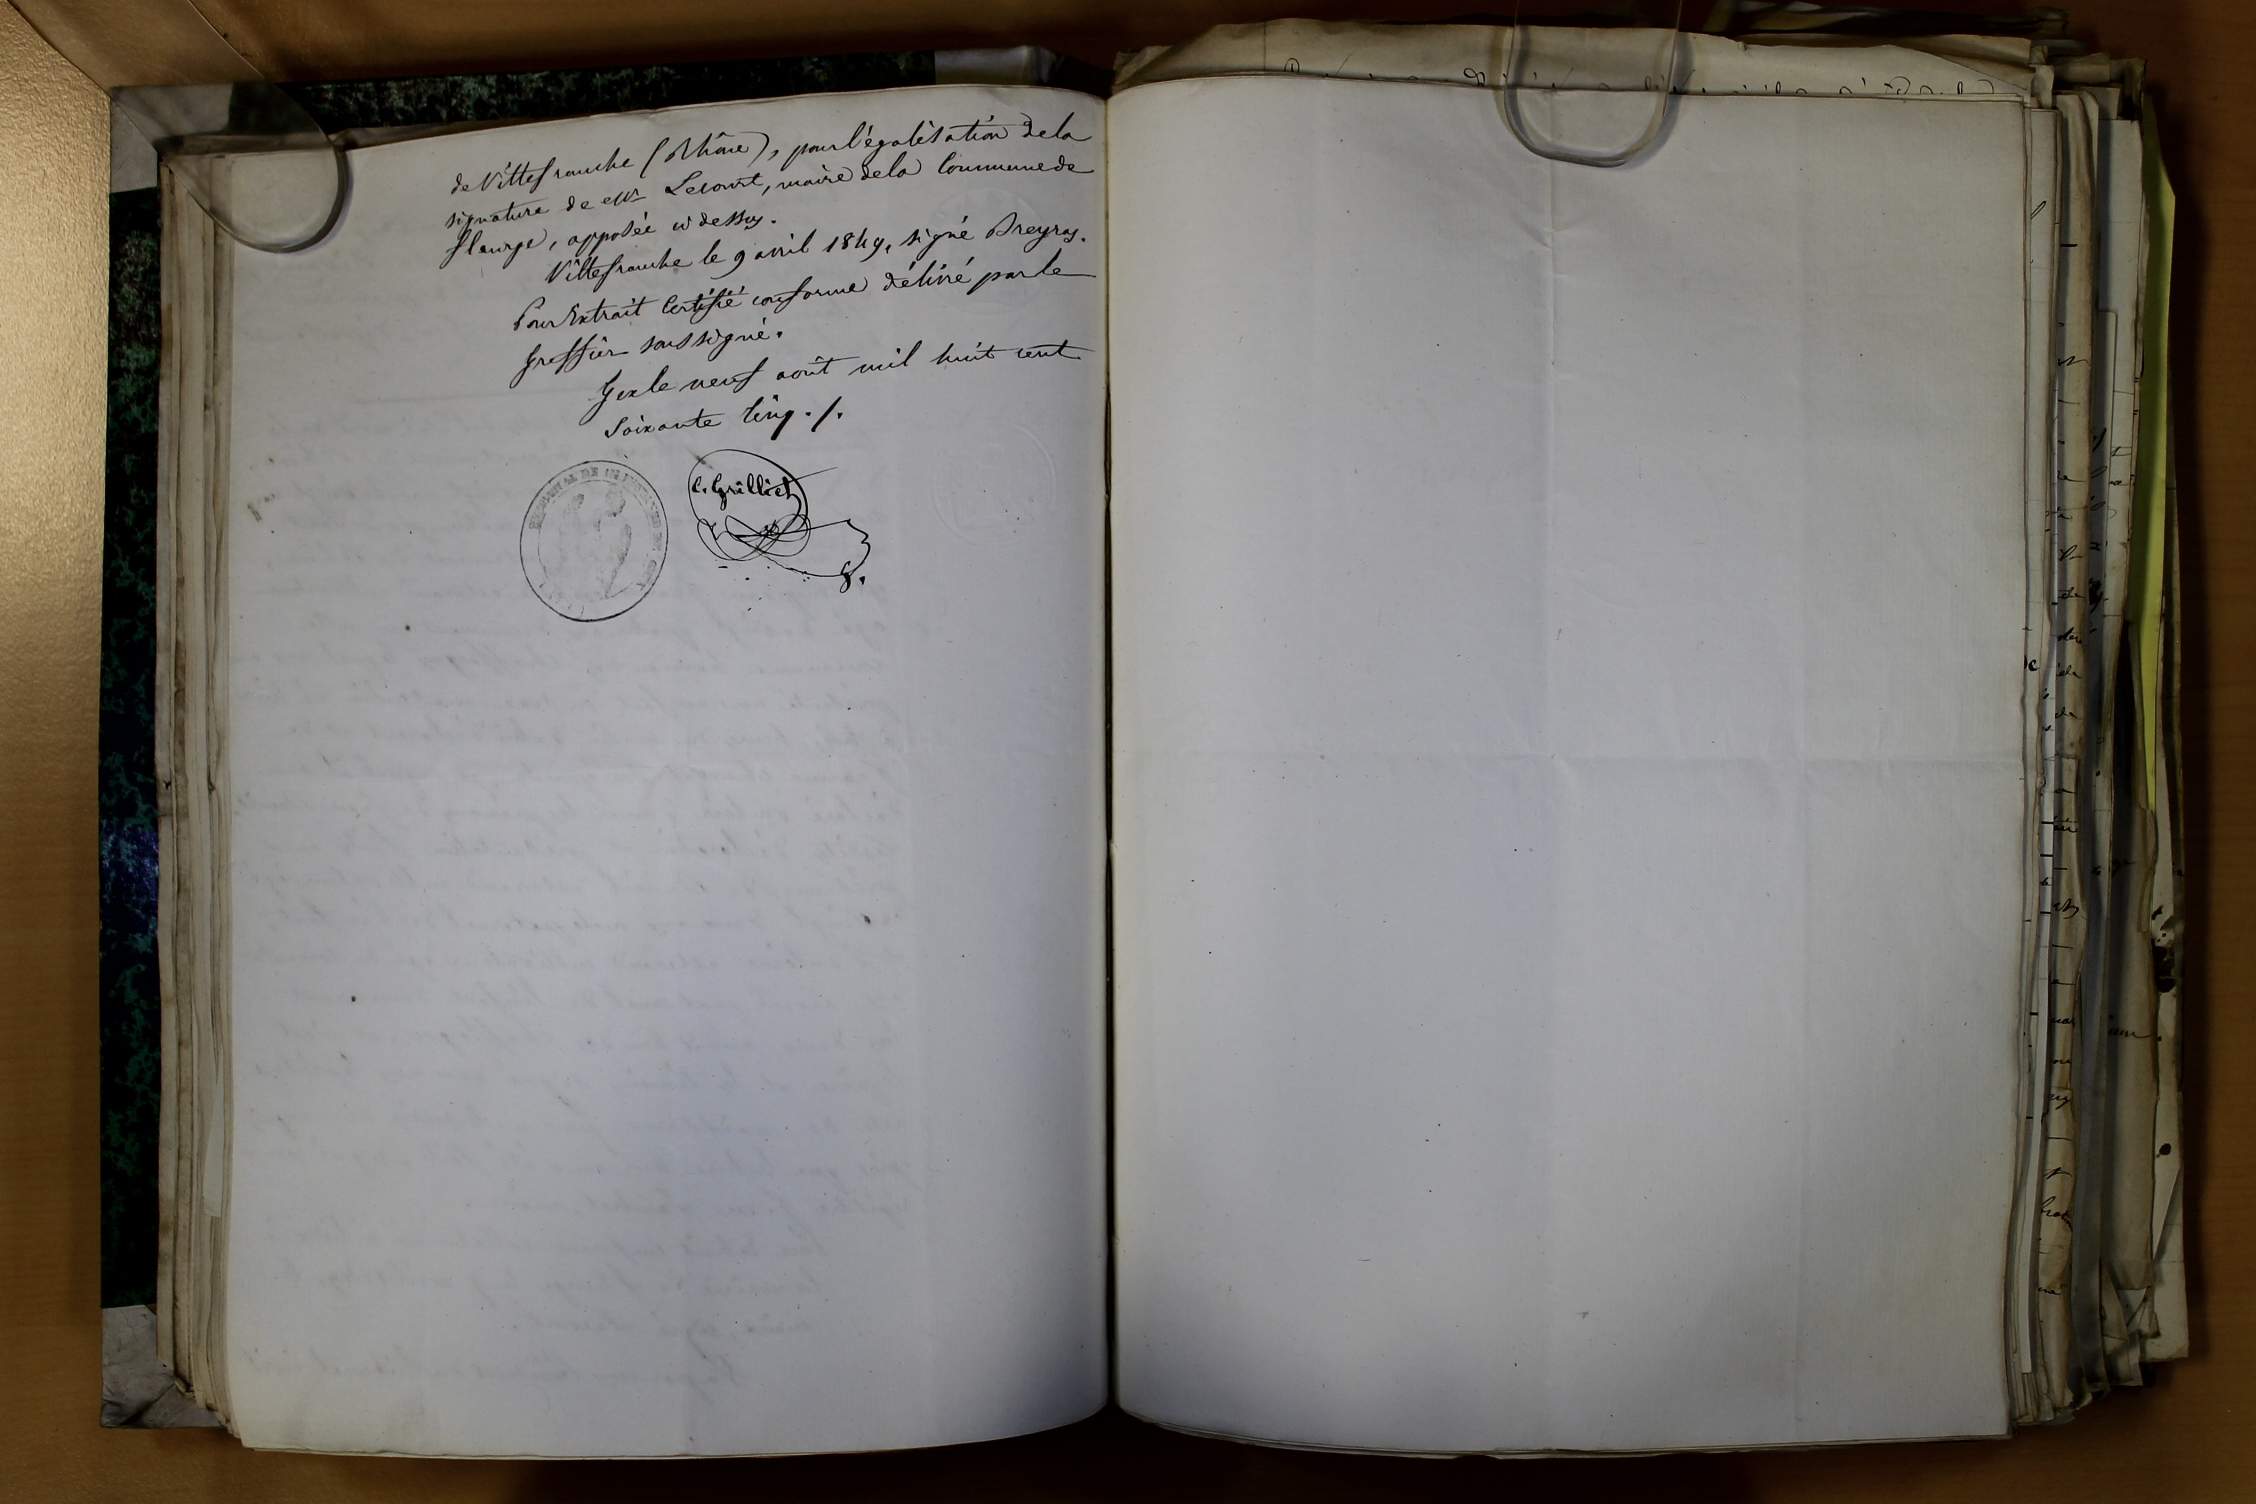 de Villefranche (Rhône), pour légalisation de la
signature de Mr Lecourt, maire de la Commune de
fleurye, apposée ci dessus.
Villefranche le 9 avril 1849, signé Breyras.
Pour Extrait Certifié conforme délivré par le
Greffier soussigné.
Gex le neuf août mil huit cent
Soixante Cinq ./.
C. Grilliet
TRIBUNAL DE